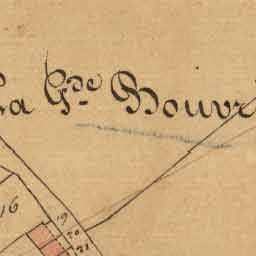 La Gde Bouvr
16
19
20
21